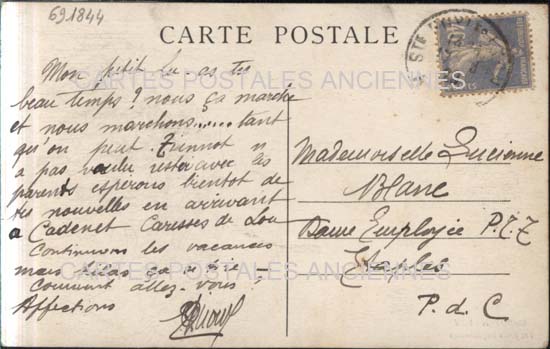 691844
CARTE POSTALE
STE
Mon petit Lu - as tu
beau temps ? nous ça marche
et nous marchons...... tant
qu'on peut. n
a pas voulu rester avec les
parents esperons bientot de
tes nouvelles en arrivant
a Cadenet Caresses de Lou
Continuons les vacances
mais helas ça tire -
Comment allez-vous
Affections
Mademoiselle Lucienne
Blanc
Dame Employée P.T.T
Etaples
P. d. C
CARTES POSTALES ANCIENNES
CARTES POSTALES ANCIENNES